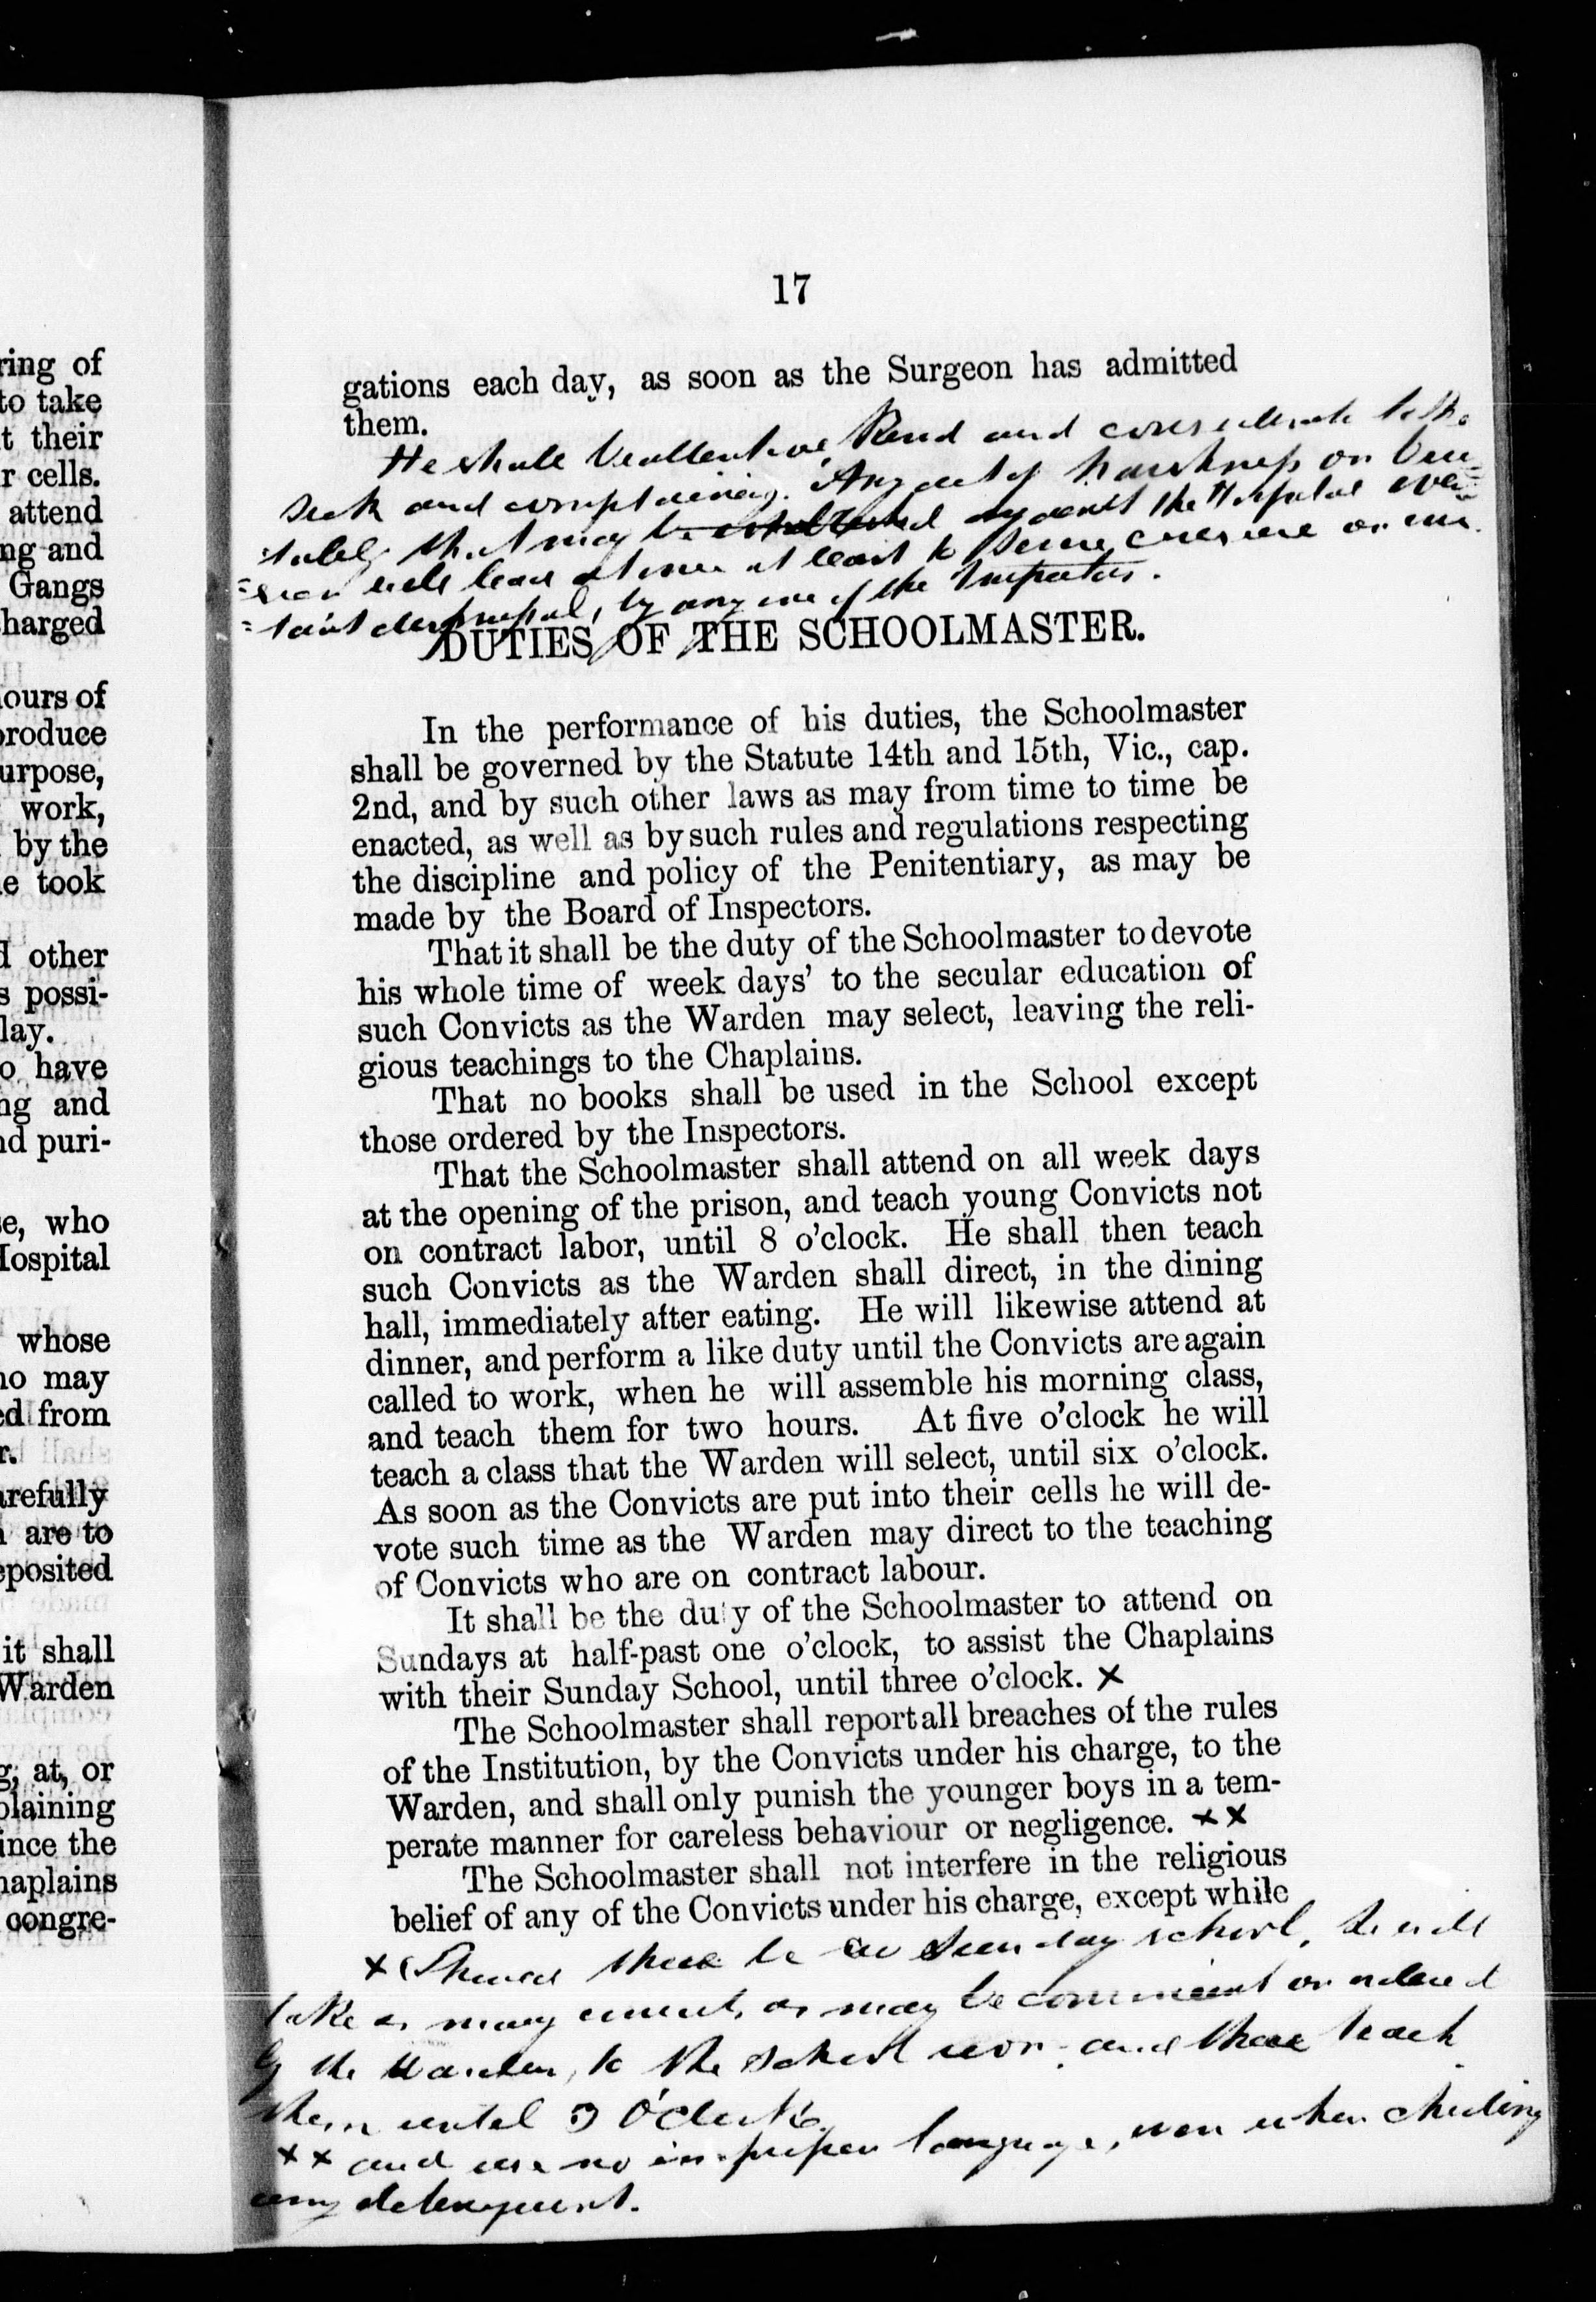 ring of
to take
t their
r cells.
attend
ng and
Gangs
harged
ours of
produce
urpose,
work,
by the
e took
d other
s possi-
lay.
o have
ng and
nd puri-
se, who
Hospital
whose
ho may
ed from
r.
arefully
are to
eposited
it shall
Warden
g, at, or
plaining
ince the
haplains
congre-
17
gations each day, as soon as the Surgeon has admitted
them.
He shall be attentive, Kind and considerate to the
sick and complaining. Any act of harshness or bru=
=tality that may be established against the Hospital over=
=seer will lead at once at least to severe censure or ins.
=tant dismissal, by any one of the Inspectors.
DUTIES OF THE SCHOOLMASTER.
In the performance of his duties, the Schoolmaster
shall be governed by the Statute 14th and 15th, Vic., cap.
2nd, and by such other laws as may from time to time be
enacted, as well as by such rules and regulations respecting
the discipline and policy of the Penitentiary, as may be
made by the Board of Inspectors.
That it shall be the duty of the Schoolmaster to devote
his whole time of week days' to the secular education of
such Convicts as the Warden may select, leaving the reli-
gious teachings to the Chaplains.
That no books shall be used in the School except
those ordered by the Inspectors.
That the Schoolmaster shall attend on all week days
at the opening of the prison, and teach young Convicts not
on contract labor, until 8 o'clock. He shall then teach
such Convicts as the Warden shall direct, in the dining
hall, immediately after eating. He will likewise attend at
dinner, and perform a like duty until the Convicts are again
called to work, when he will assemble his morning class,
and teach them for two hours. At five o'clock he will
teach a class that the Warden will select, until six o'clock.
As soon as the Convicts are put into their cells he will de-
vote such time as the Warden may direct to the teaching
of Convicts who are on contract labour.
It shall be the duty of the Schoolmaster to attend on
Sundays at half-past one o'clock, to assist the Chaplains
with their Sunday School, until three o'clock. X
The Schoolmaster shall report all breaches of the rules
of the Institution, by the Convicts under his charge, to the
Warden, and shall only punish the younger boys in a tem-
perate manner for careless behaviour or negligence. X X
The Schoolmaster shall not interfere in the religious
belief of any of the Convicts under his charge, except while
X Should there be no Sunday school, he will
take as many convicts as may be convenient or ordered
by the Warden, to the school room and there teach
them until 3 O'Clock.
X X and use no improper language, even when chiding
any delinquent.